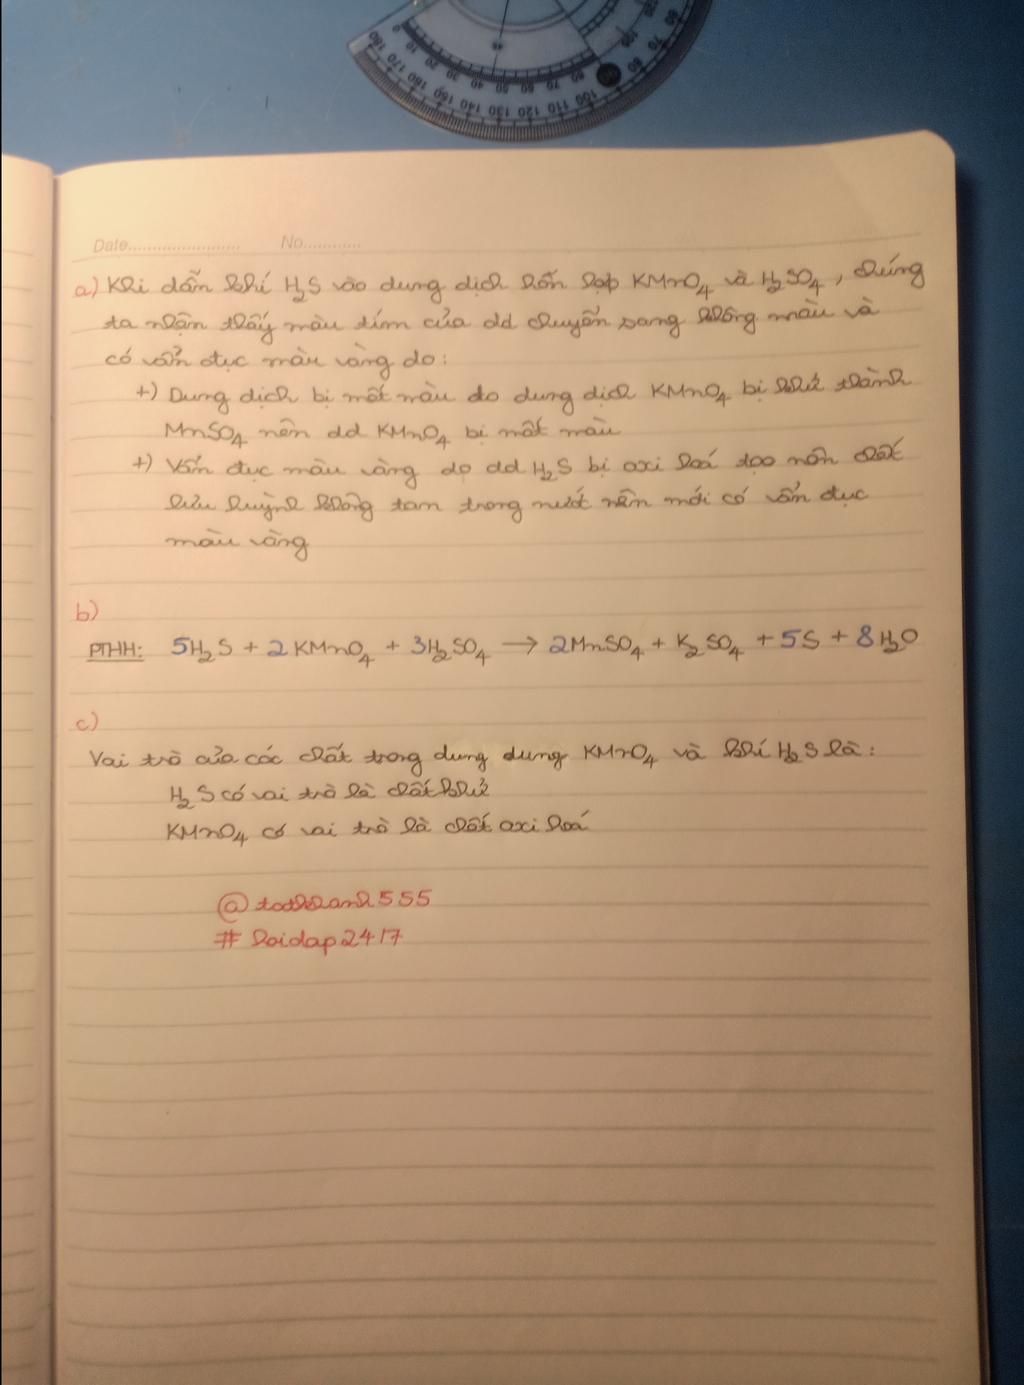 Date........................ No............
a) Khi dẫn khí H₂S vào dung dịch hỗn hợp KMnO₄ và H₂SO₄, chúng
ta nhận thấy màu tím của dd chuyển sang không màu và
có vẩn đục màu vàng do:
+) Dung dịch bị mất màu do dung dịch KMnO₄ bị khử thành
MnSO₄ nên dd KMnO₄ bị mất màu
+) Vẩn đục màu vàng do dd H₂S bị oxi hoá tạo nên chất
lưu huỳnh không tan trong nước nên mới có vẩn đục
màu vàng
b)
PTHH: 5H₂S + 2KMnO₄ + 3H₂SO₄ → 2MnSO₄ + K₂SO₄ + 5S + 8H₂O
c)
Vai trò của các chất trong dung dung KMnO₄ và khí H₂S là:
H₂S có vai trò là chất khử
KMnO₄ có vai trò là chất oxi hoá
#hoidap2417
0 10 20 30 40 50 60 70 80
180 170 160 150 140 130 120 110 100